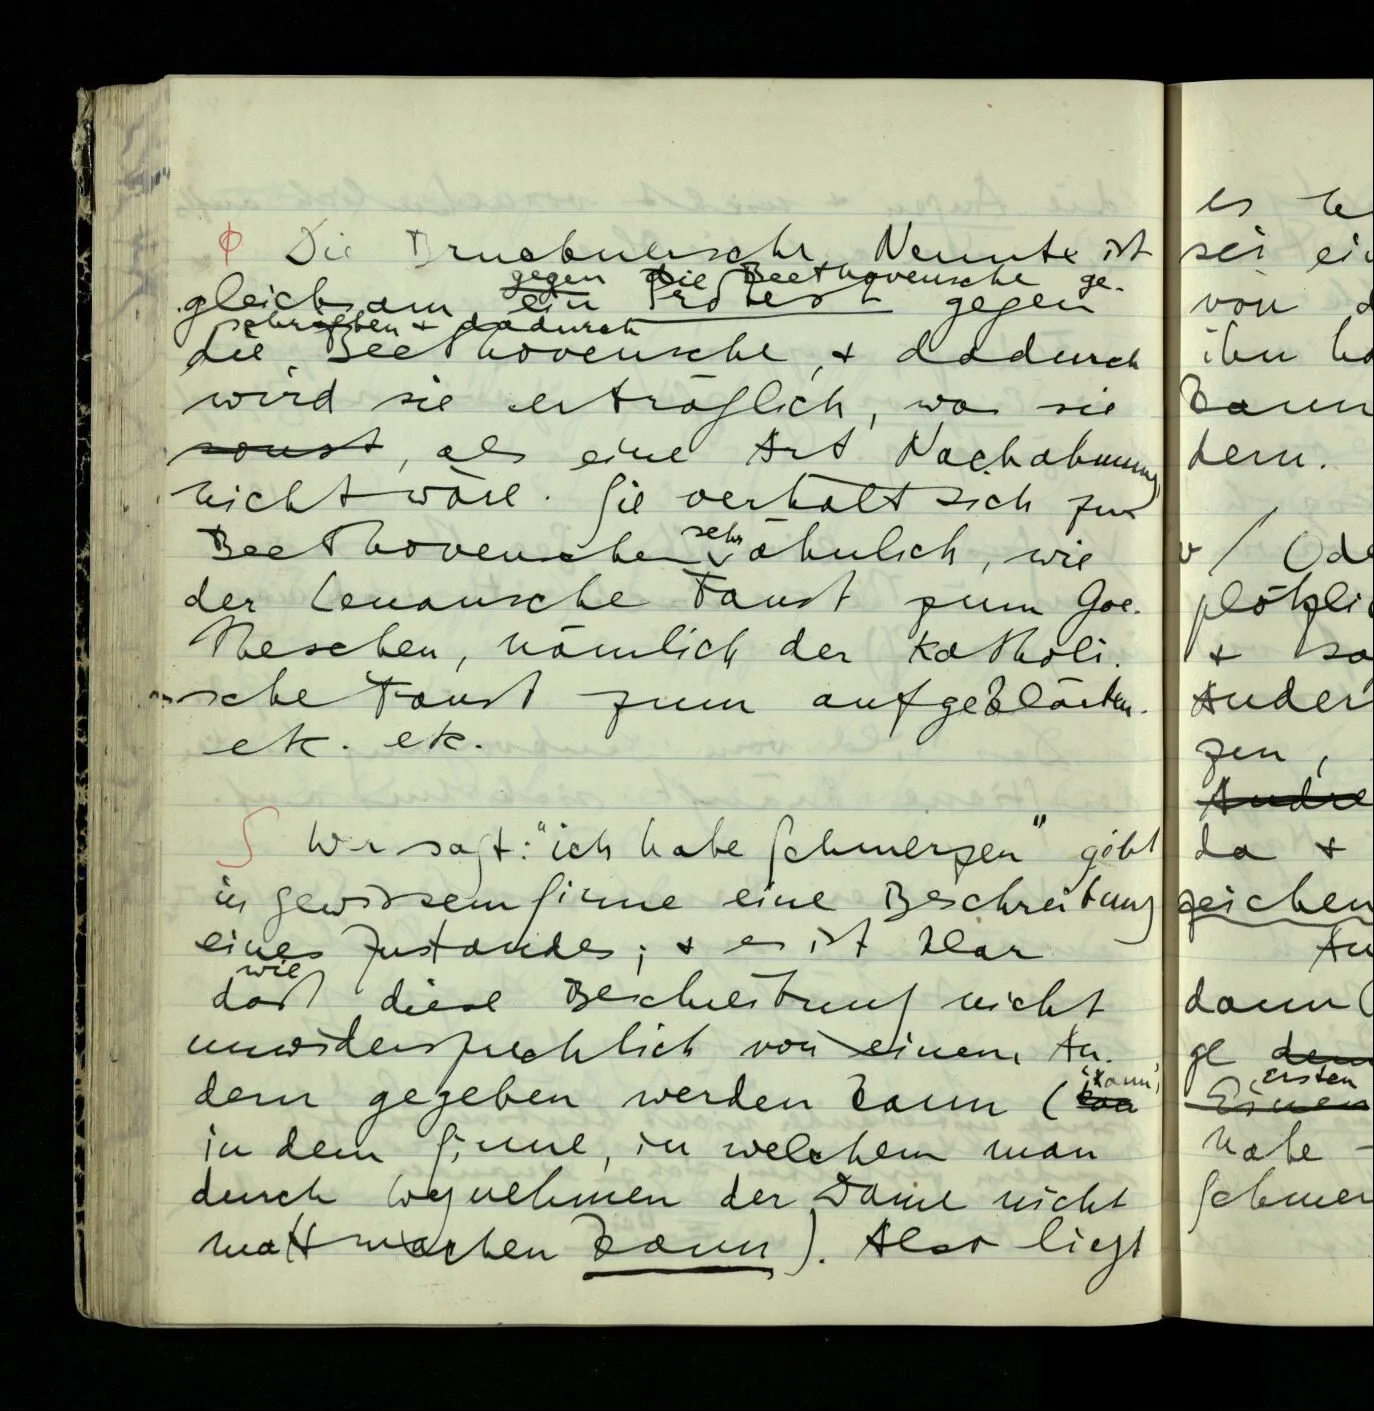 Die Brucknersche Neunte ist
gegen die Beethovensche ge-
gleichsam ein Protest gegen
schrieben & dadurch
die Beethovensche, & dadurch
wird sie erträglich, was sie
sonst, als eine Art Nachahmung
nicht wäre. Sie verhält sich zur
Beethovenschen sehr ähnlich, wie
der Lenausche Faust zum Goe-
theschen, nämlich der katholi-
sche Faust zum aufgeklärten.
etc. etc.
∫ Wer sagt: "ich habe Schmerzen" gibt
in gewissem Sinne eine Beschreibung
eines Zustandes; & es ist klar
wie
daß diese Beschreibung nicht
unwidersprechlich von einem An-
dern gegeben werden kann ('kann',
in dem Sinne, in welchem man
durch Wegnehmen der Dame nicht
matt machen kann). Also liegt
es
sei ein
von d
ihn ha
kann
dern.
v / Ode
plötzlic
& so
Ander
zen,
Andre
da &
zeichen
An
dann (
ge dem
ersten
Einen
habe -
Schmer